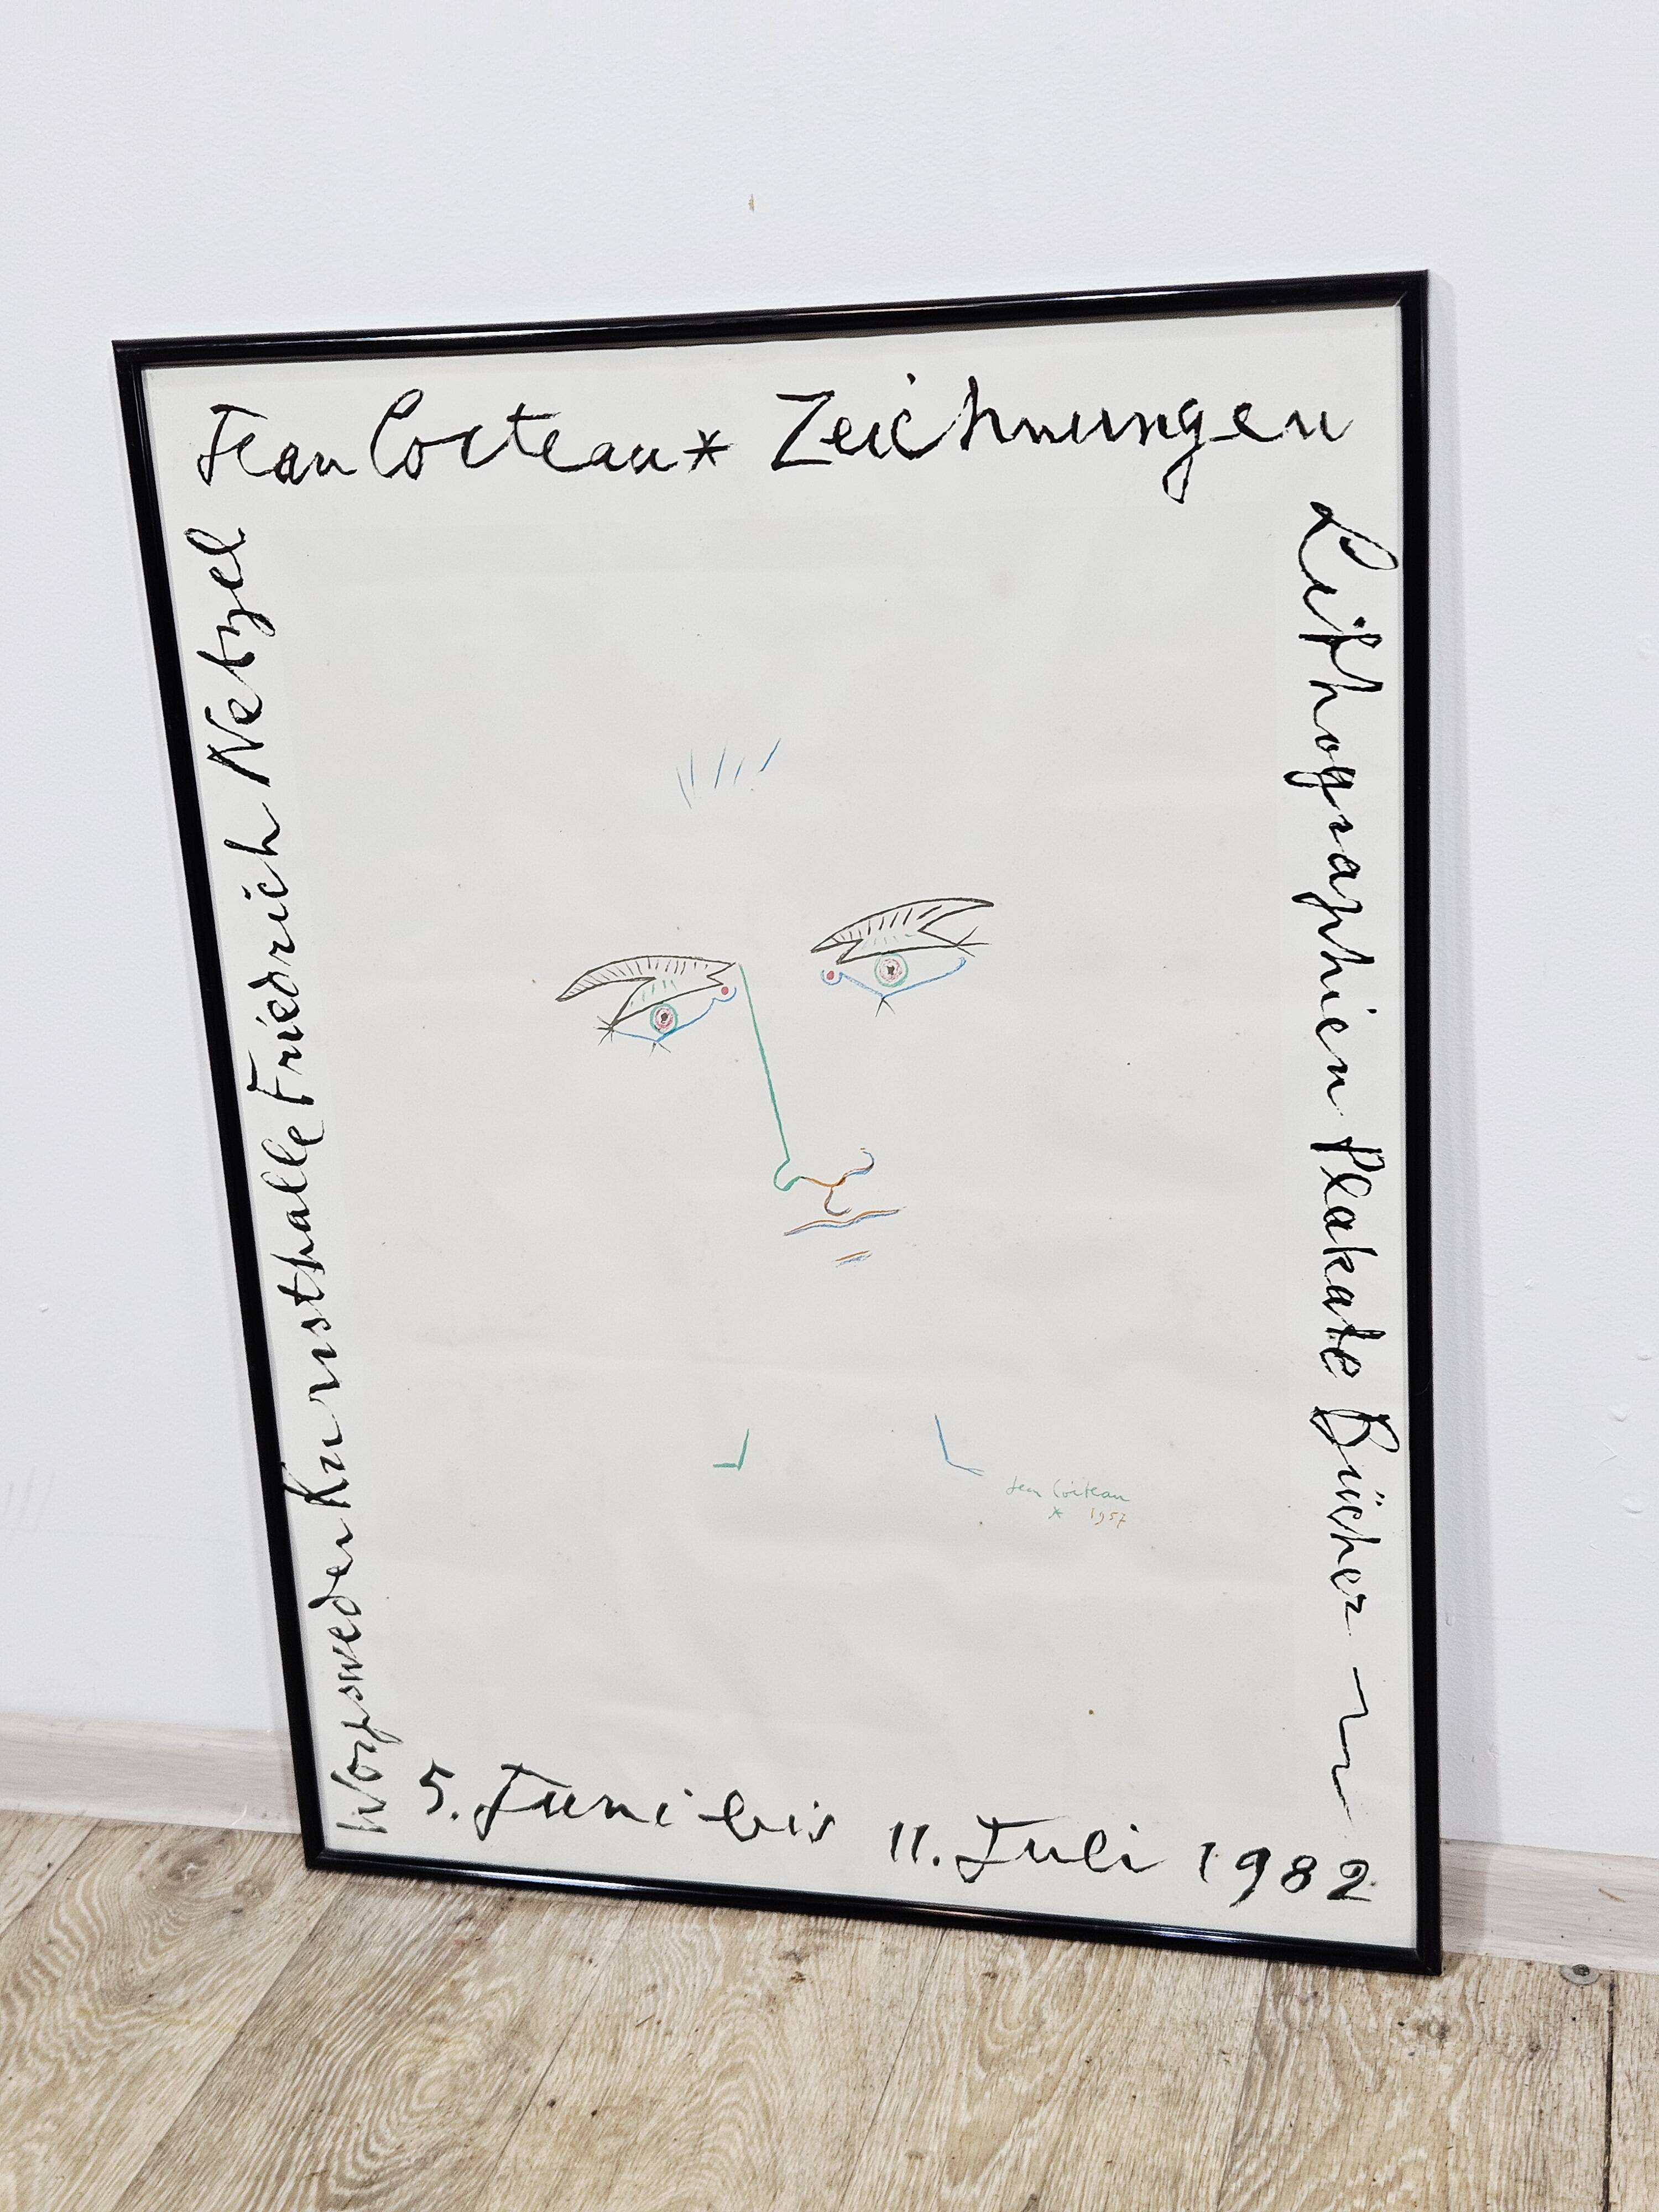 Jean Cocteau * Zeichnungen
Lithographien Plakate Bücher
5. Juni bis 11. Juli 1982
Worpsweder Kunsthalle Friedrich Netzel
Jean Cocteau
* 1957